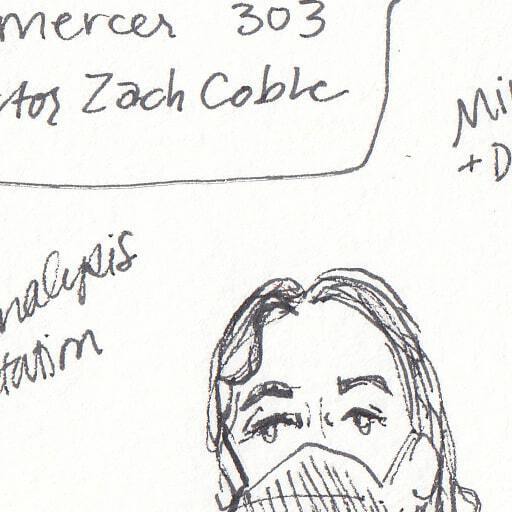 mercer 303
tor Zach Coble
Mi
+ D
nalysis
tation